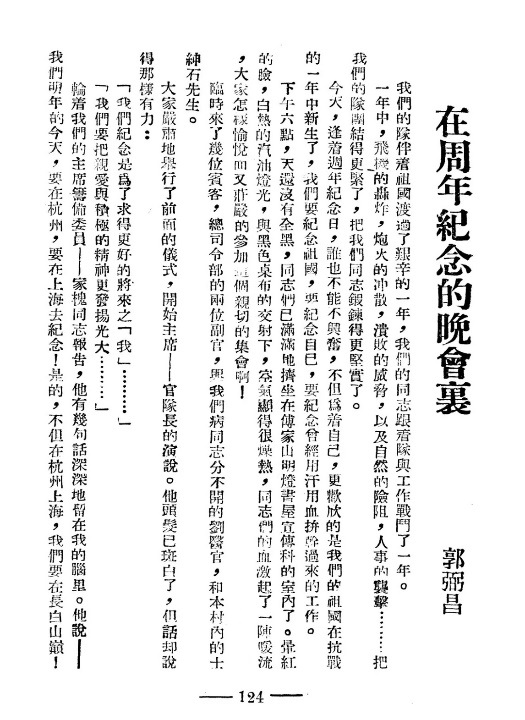 在周年紀念的晚會裏
郭弼昌
我們的隊伴着祖國渡過了艱辛的一年，我們的同志跟着隊與工作戰鬥了一年。
一年中，飛機的轟炸，炮火的冲散，潰敗的威脅，以及自然的險阻，人事的襲擊………把
我們的隊團結得更緊了，把我們同志鍛鍊得更堅實了。
今天，逢着週年紀念日，誰也不能不興奮，不但爲着自己，更歡欣的是我們的祖國在抗戰
的一年中新生了，我們要紀念祖國，要紀念自己，要紀念曾經用汗用血拚幹過來的工作。
下午六點，天還沒有全黑，同志們已滿滿地擠坐在傅家山明燈書屋宣傳科的室內了。暈紅
的臉，白熱的汽油燈光，與黑色桌布的交射下，空氣顯得很燥熱，同志們的血激起了一陣暖流
，大家怎樣愉悅而又莊嚴的參加這個親切的集會啊！
臨時來了幾位賓客，總司令部的兩位副官，與我們病同志分不開的劉醫官，和本村內的士
紳石先生。
大家嚴肅地舉行了前面的儀式，開始主席——官隊長的演說。他頭髮已斑白了，但話却說
得那樣有力：
「我們紀念是爲了求得更好的將來之「我」………」
「我們要把親愛與積極的精神更發揚光大………」
輪着我們的主席籌備委員——家槐同志報告，他有幾句話深深地留在我的腦里。他說——
我們明年的今天，要在杭州，要在上海去紀念！是的，不但在杭州上海，我們要在長白山巔！
— 124 —